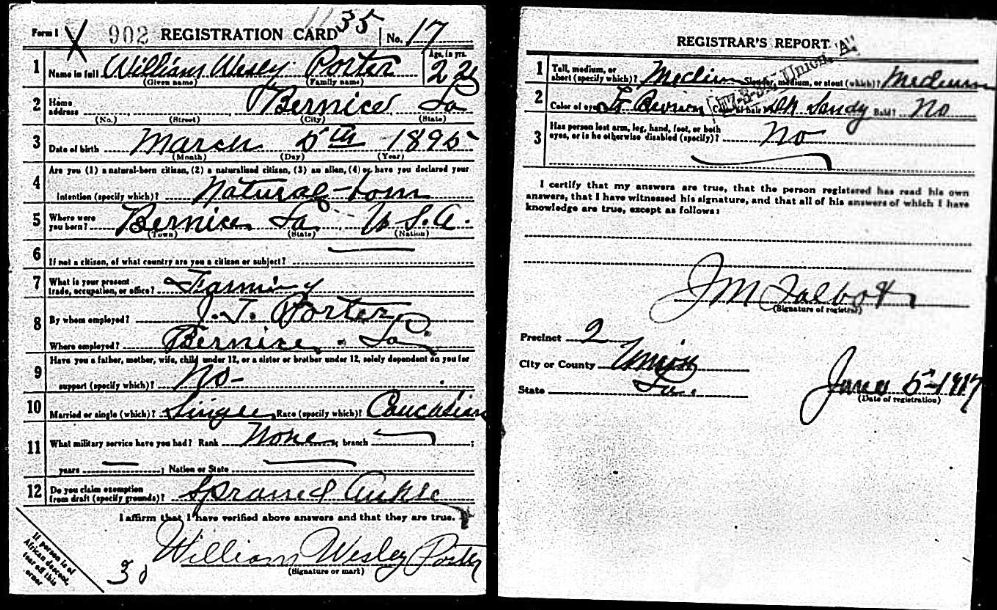 Form 1 902 REGISTRATION CARD 35 No. 17
1 Name in full William Wesly Porter Age, in yrs. 22
(Given name) (Family name)
2 Home address Bernice La
(No.) (Street) (City) (State)
3 Date of birth March 5th 1895
(Month) (Day) (Year)
Are you (1) a natural-born citizen, (2) a naturalized citizen, (3) an alien, (4) or have you declared your
4 intention (specify which)? Natural-born
5 Where were you born? Bernice La U.S.A.
(Town) (State) (Nation)
6 If not a citizen, of what country are you a citizen or subject?
7 What is your present trade, occupation, or office? Farming
8 By whom employed? J. T. Porter
Where employed? Bernice La
Have you a father, mother, wife, child under 12, or a sister or brother under 12, solely dependent on you for
9 support (specify which)? No-
10 Married or single (which)? Single Race (specify which)? Caucasian
11 What military service have you had? Rank None; branch ;
years ; Nation or State
12 Do you claim exemption from draft (specify grounds)? Spraned Ankle
I affirm that I have verified above answers and that they are true.
William Wesley Porter
(Signature or mark)
If person is of African descent, tear off this corner
30
REGISTRAR'S REPORT
1 Tall, medium, or short (specify which)? Medium Slender, medium, or stout (which)? Medium
2 Color of eyes Brown Color of hair Sandy Bald? No
3 Has person lost arm, leg, hand, foot, or both eyes, or is he otherwise disabled (specify)? No
I certify that my answers are true, that the person registered has read his own
answers, that I have witnessed his signature, and that all of his answers of which I have
knowledge are true, except as follows:
J M Talbot
(Signature of registrar)
Precinct 2
City or County Union
State La.
June 5-1917
(Date of registration)